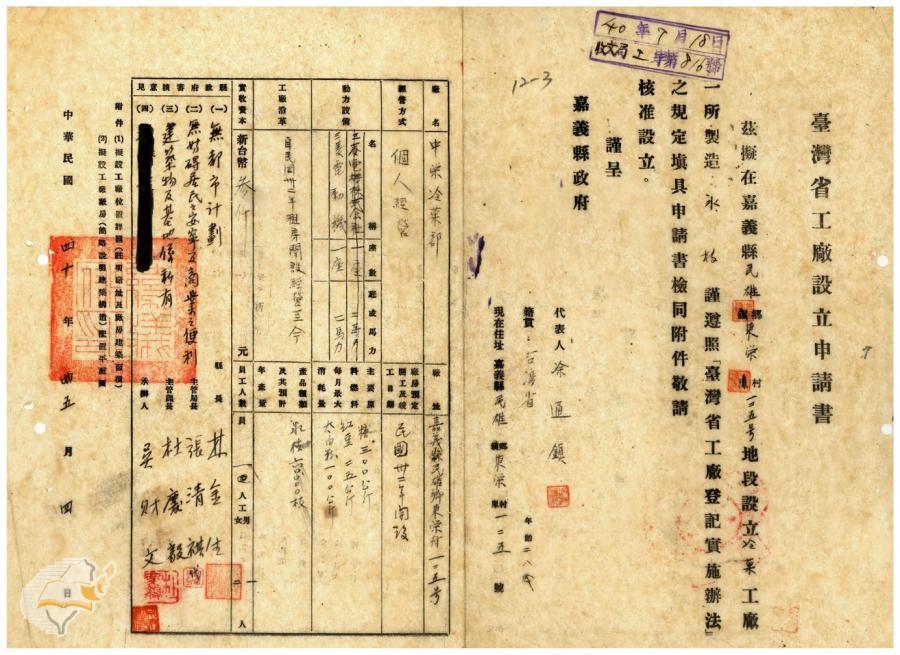 40年7月18日
收文局工字第816號
12-3
臺灣省工廠設立申請書
茲擬在嘉義縣民雄鄉東榮村一二五號地段設立冷菓工廠
一所製造冰枝謹遵照「臺灣省工廠登記實施辦法」
之規定塡具申請書檢同附件敬請
核准設立。
謹呈
嘉義縣政府
代表人 涂通鎮
年齡二八歲
籍貫:台灣省
現在住址 嘉義縣民雄鄉東榮村一二五號
廠名 中榮冷菓部
廠址 嘉義縣民雄鄉東榮村一二五號
經營方式 個人經營
廠房預定開工及竣工日期 民國卅二年開設
動力設備 名稱座數延或馬力
三菱電動機一座 二馬力
主要原料燃料每月最大消耗量
糖三〇〇公斤
紅豆二五公斤
太白粉一〇〇公斤
工廠沿革 自民國卅二年租房開設經營至今
產品種類及其預計年產量
冰枝
實收資本 新台幣 元
員工人數 員 人 工 男 女 一 二 人
縣政府審核意見
(一)無都市計劃
(二)無妨碍居民之安寧及商業之便利
(三)建築物及基地係新有
(四)
縣長 林金生
主管局長 張清
主管課長 杜慶毅
承辦人 吳財文
附件(1)擬設工廠位置詳圖
(2)擬設工廠廠房
中華民國四十年 五月四日